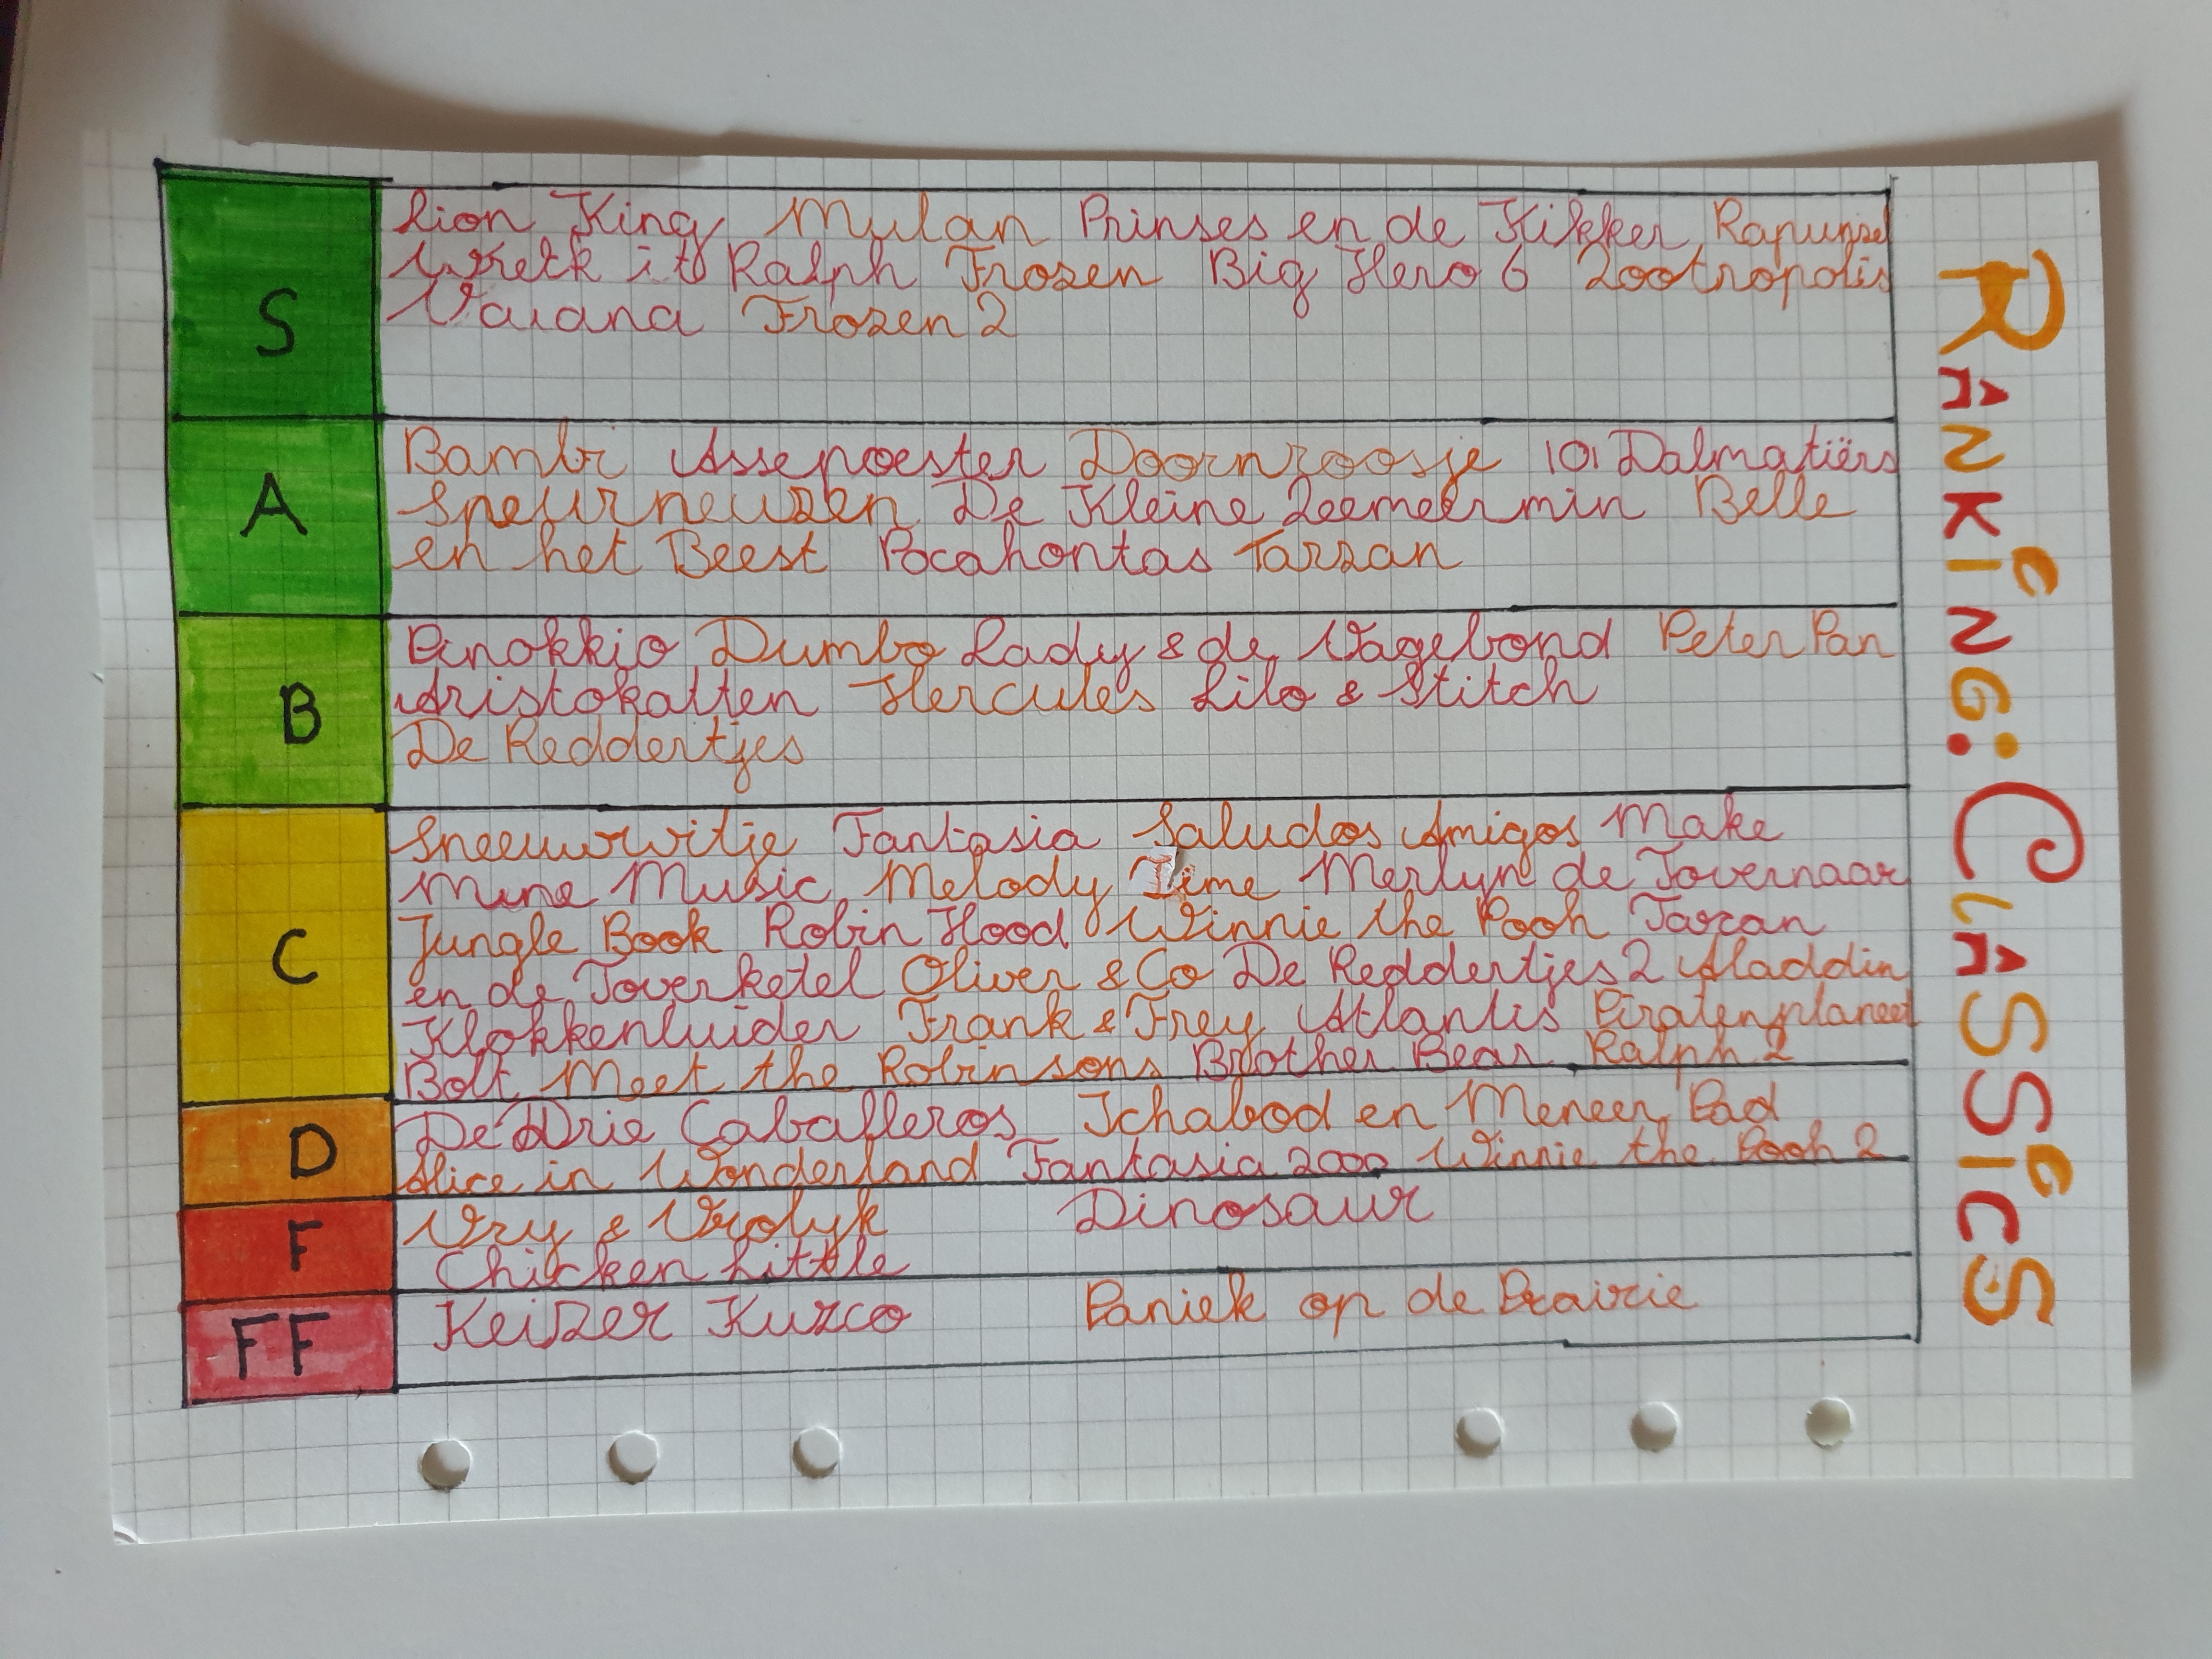 S
Lion King Mulan Prinses en de Kikker Rapunzel
Wreck it Ralph Frozen Big Hero 6 Zootropolis
Vaiana Frozen 2
A
Bambi Assepoester Doornroosje 101 Dalmatiërs
Speurneuzen De Kleine Zeemeermin Belle
en het Beest Pocahontas Tarzan
B
Pinokkio Dumbo Lady & de Vagebond Peter Pan
Aristokatten Hercules Lilo & Stitch
De Reddertjes
C
Sneeuwwitje Fantasia Saludos Amigos Make
Mine Music Melody Time Merlyn de Tovernaar
Jungle Book Robin Hood Winnie the Pooh Taran
en de Toverketel Oliver & Co De Reddertjes 2 Aladdin
Klokkenluider Frank & Frey Atlantis Piratenplaneet
Bolt Meet the Robinsons Brother Bear Ralph 2
D
De Drie Caballeros Ichabod en Meneer Pad
Alice in Wonderland Fantasia 2000 Winnie the Pooh 2
F
Vry & Vrolyk Dinosaur
Chicken Little
FF
Keizer Kuzco Paniek op de Prairie
RANKING: CLASSICS